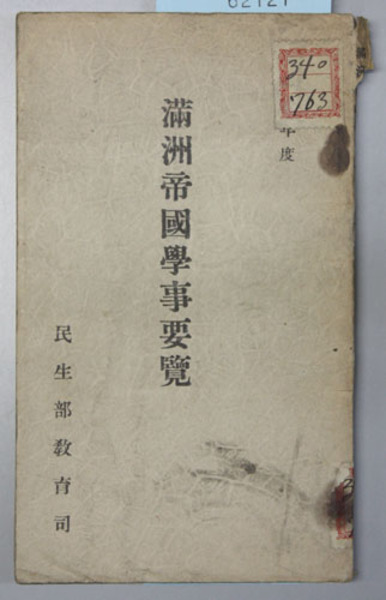 62121
340
763
年度
滿洲帝國學事要覽
民生部敎育司